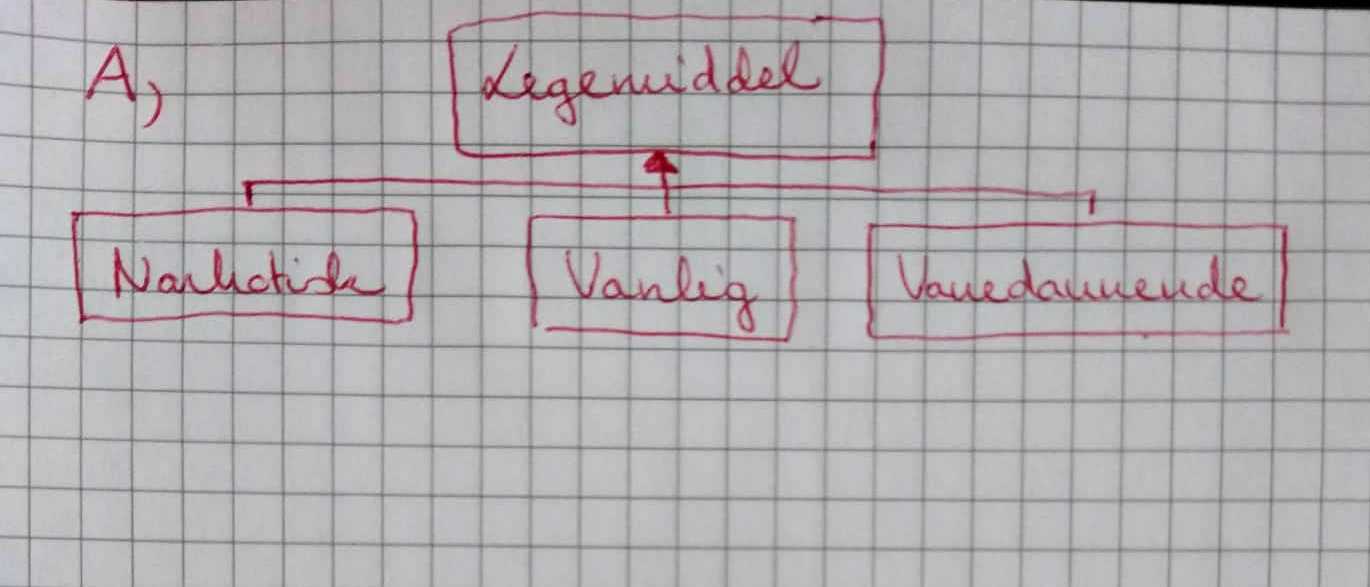 A)
Legemiddel
Narkotisk Vanlig Vanedannende